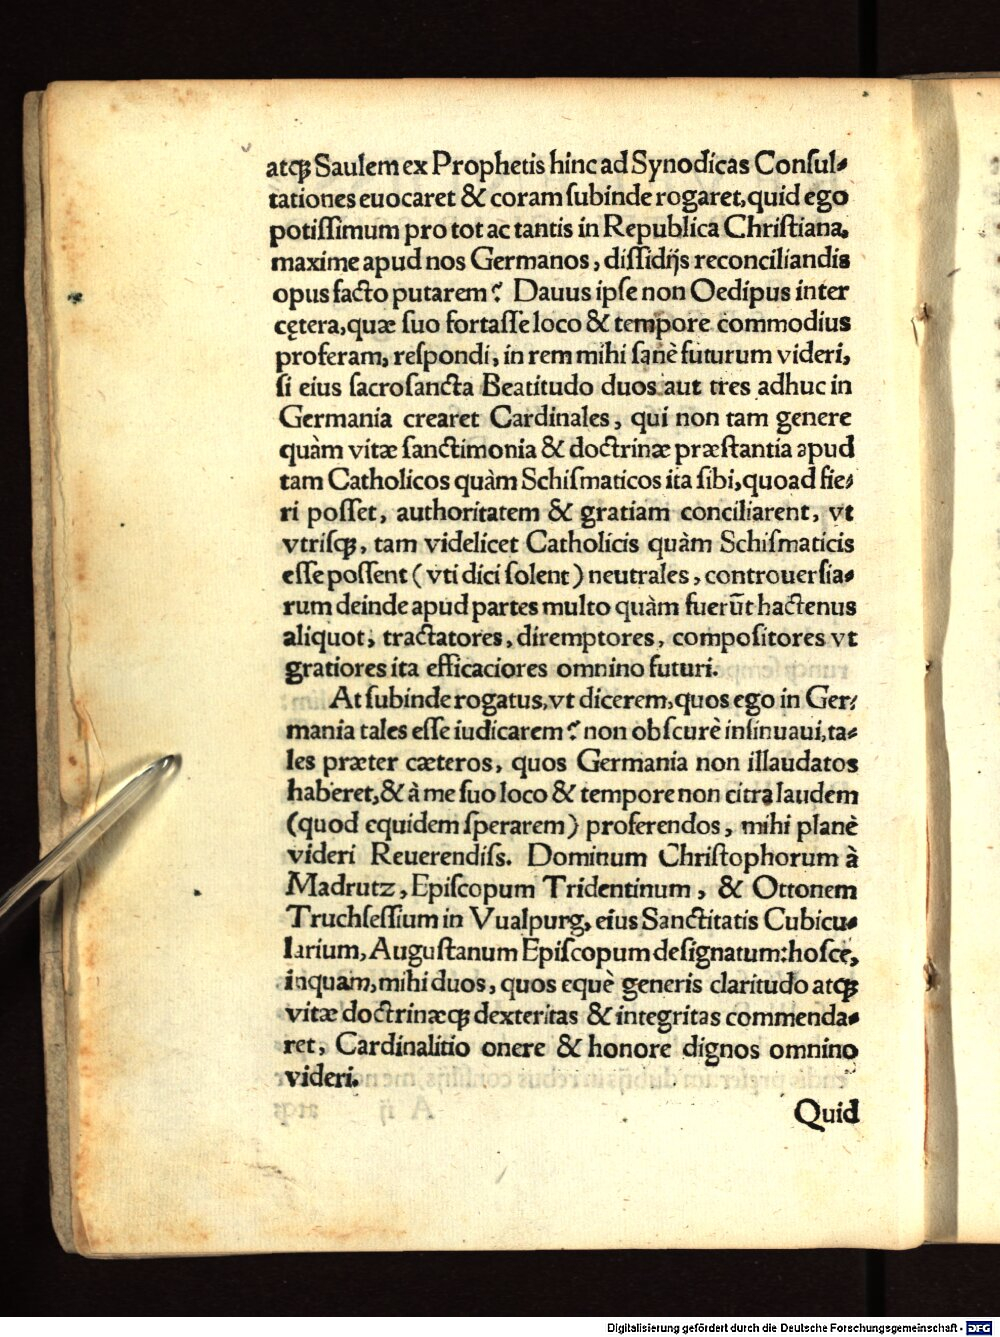 atq́ꝫ Saulem ex Prophetis hinc ad Synodicas Conſul⸗
tationes euocaret & coram ſubinde rogaret, quid ego
potiſſimum pro tot ac tantis in Republica Chriſtiana,
maxime apud nos Germanos, diſſidijs reconciliandis
opus facto putarem? Dauus ipſe non Oedipus inter
cętera, quæ ſuo fortaſſe loco & tempore commodius
proferam, reſpondi, in rem mihi ſanè futurum videri,
ſi eius ſacroſancta Beatitudo duos aut tres adhuc in
Germania crearet Cardinales, qui non tam genere
quàm vitæ ſanctimonia & doctrinæ præſtantia apud
tam Catholicos quàm Schiſmaticos ita ſibi, quoad fie⸗
ri poſſet, authoritatem & gratiam conciliarent, vt
vtriſq́ꝫ, tam videlicet Catholicis quàm Schiſmaticis
eſſe poſſent (vti dici ſolent) neutrales, controuerſia⸗
rum deinde apud partes multo quàm fuerūt hactenus
aliquot, tractatores, diremptores, compoſitores vt
gratiores ita efficaciores omnino futuri.
At ſubinde rogatus, vt dicerem, quos ego in Ger⸗
mania tales eſſe iudicarem? non obſcurè inſinuaui, ta⸗
les præter cæteros, quos Germania non illaudatos
haberet, & à me ſuo loco & tempore non citra laudem
(quod equidem ſperarem) proferendos, mihi planè
videri Reuerendiſs. Dominum Chriſtophorum à
Madrutz, Epiſcopum Tridentinum, & Ottonem
Truchſeſſium in Vualpurg, eius Sanctitatis Cubicu⸗
larium, Auguſtanum Epiſcopum deſignatum: hoſce,
inquam, mihi duos, quos equè generis claritudo atq́ꝫ
vitæ doctrinæq́ꝫ dexteritas & integritas commenda⸗
ret, Cardinalitio onere & honore dignos omnino
videri.
Quid
Digitalisierung gefördert durch die Deutsche Forschungsgemeinschaft - DFG